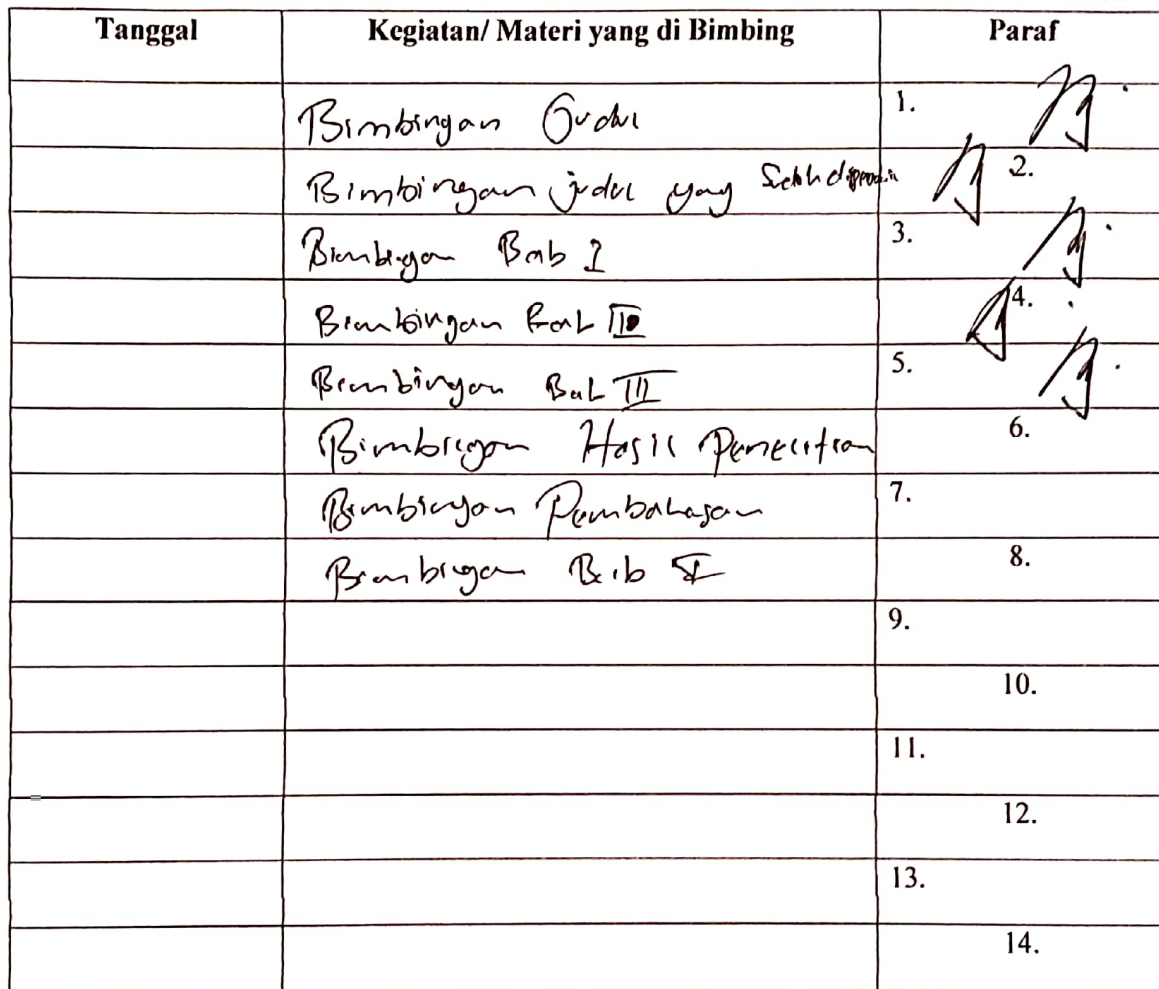 Tanggal Kegiatan/ Materi yang di Bimbing Paraf
Bimbingan Judul 1.
Bimbingan judul yang 2.
Bimbingan Bab I 3.
Bimbingan Bab II 4.
Bimbingan Bab III 5.
Bimbingan Hasil Penelitian 6.
Bimbingan Pembahasan 7.
Bimbingan Bab V 8.
9.
10.
11.
12.
13.
14.